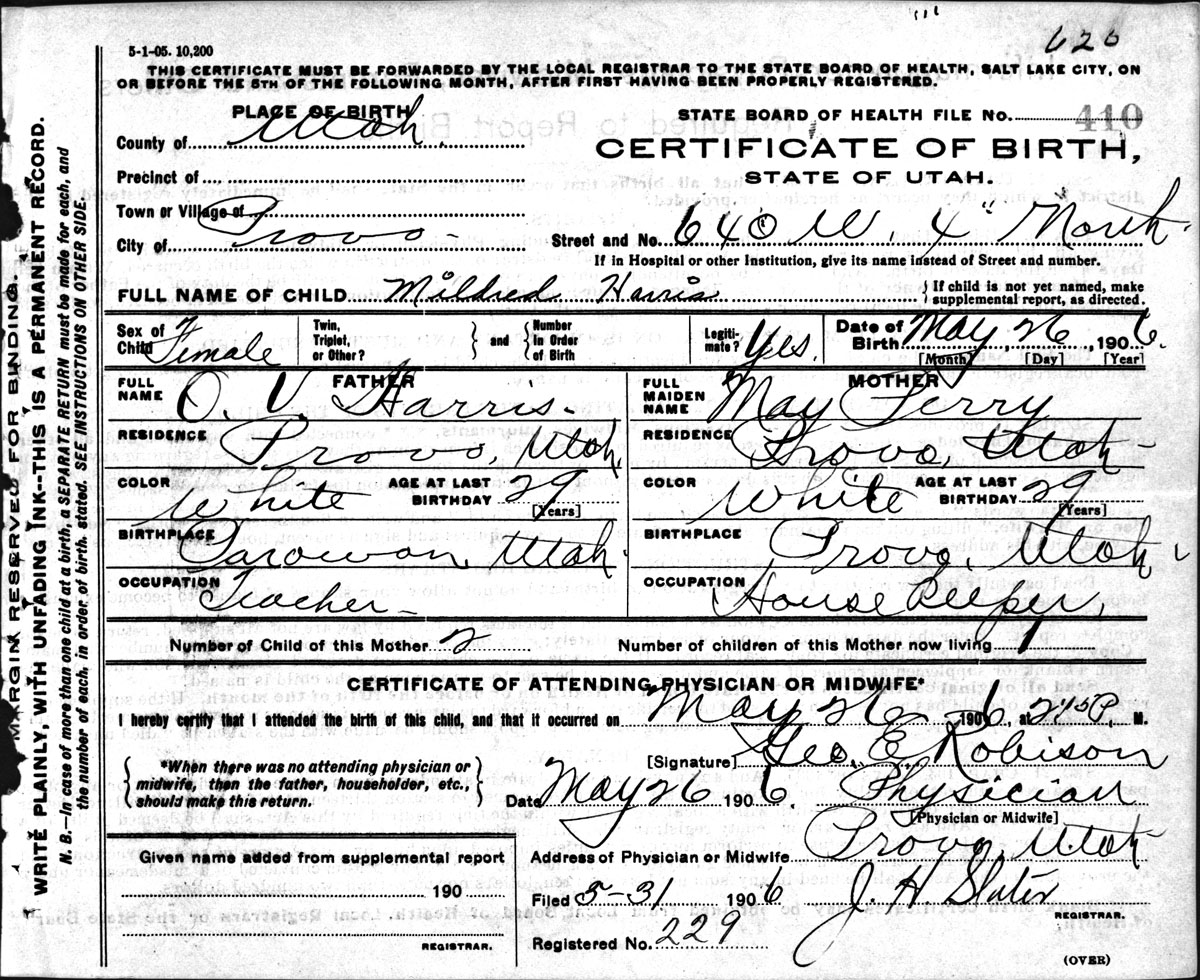 620
5-1-05. 10,200
THIS CERTIFICATE MUST BE FORWARDED BY THE LOCAL REGISTRAR TO THE STATE BOARD OF HEALTH, SALT LAKE CITY, ON
OR BEFORE THE 5TH OF THE FOLLOWING MONTH, AFTER FIRST HAVING BEEN PROPERLY REGISTERED.
MARGIN RESERVED FOR BINDING.
WRITE PLAINLY, WITH UNFADING INK--THIS IS A PERMANENT RECORD.
N. B.—In case of more than one child at a birth, a SEPARATE RETURN must be made for each, and
the number of each, in order of birth, stated. SEE INSTRUCTIONS ON OTHER SIDE.
PLACE OF BIRTH
County of Utah.
Precinct of
Town or Village of
City of Provo
STATE BOARD OF HEALTH FILE NO. 410
CERTIFICATE OF BIRTH,
STATE OF UTAH.
Street and No. 640 W. 4" North
If in Hospital or other Institution, give its name instead of Street and number.
FULL NAME OF CHILD Mildred Harris
} If child is not yet named, make
supplemental report, as directed.
Sex of Child Female
Twin, Triplet, or Other? } and { Number In Order of Birth
Legiti-mate? Yes.
Date of Birth May 26, 1906.
[Month] [Day] [Year]
FATHER
FULL NAME O. V. Harris.
RESIDENCE Provo, Utah
COLOR White
AGE AT LAST BIRTHDAY 29
[Years]
BIRTHPLACE Parowan, Utah.
OCCUPATION Teacher
MOTHER
FULL MAIDEN NAME May Ferry
RESIDENCE Provo, Utah
COLOR White
AGE AT LAST BIRTHDAY 29
[Years]
BIRTHPLACE Provo, Utah
OCCUPATION House Keeper,
Number of Child of this Mother 2
Number of children of this Mother now living 1
CERTIFICATE OF ATTENDING PHYSICIAN OR MIDWIFE*
I hereby certify that I attended the birth of this child, and that it occurred on May 26 1906, at P. M.
[Signature] Geo. E. Robison
{ *When there was no attending physician or
midwife, then the father, householder, etc.,
should make this return. }
Date May 26 1906. Physician
[Physician or Midwife]
Given name added from supplemental report
190
REGISTRAR.
Address of Physician or Midwife Provo, Utah
Filed 5-31 1906 J. H. Slater
REGISTRAR.
Registered No. 229
(OVER)